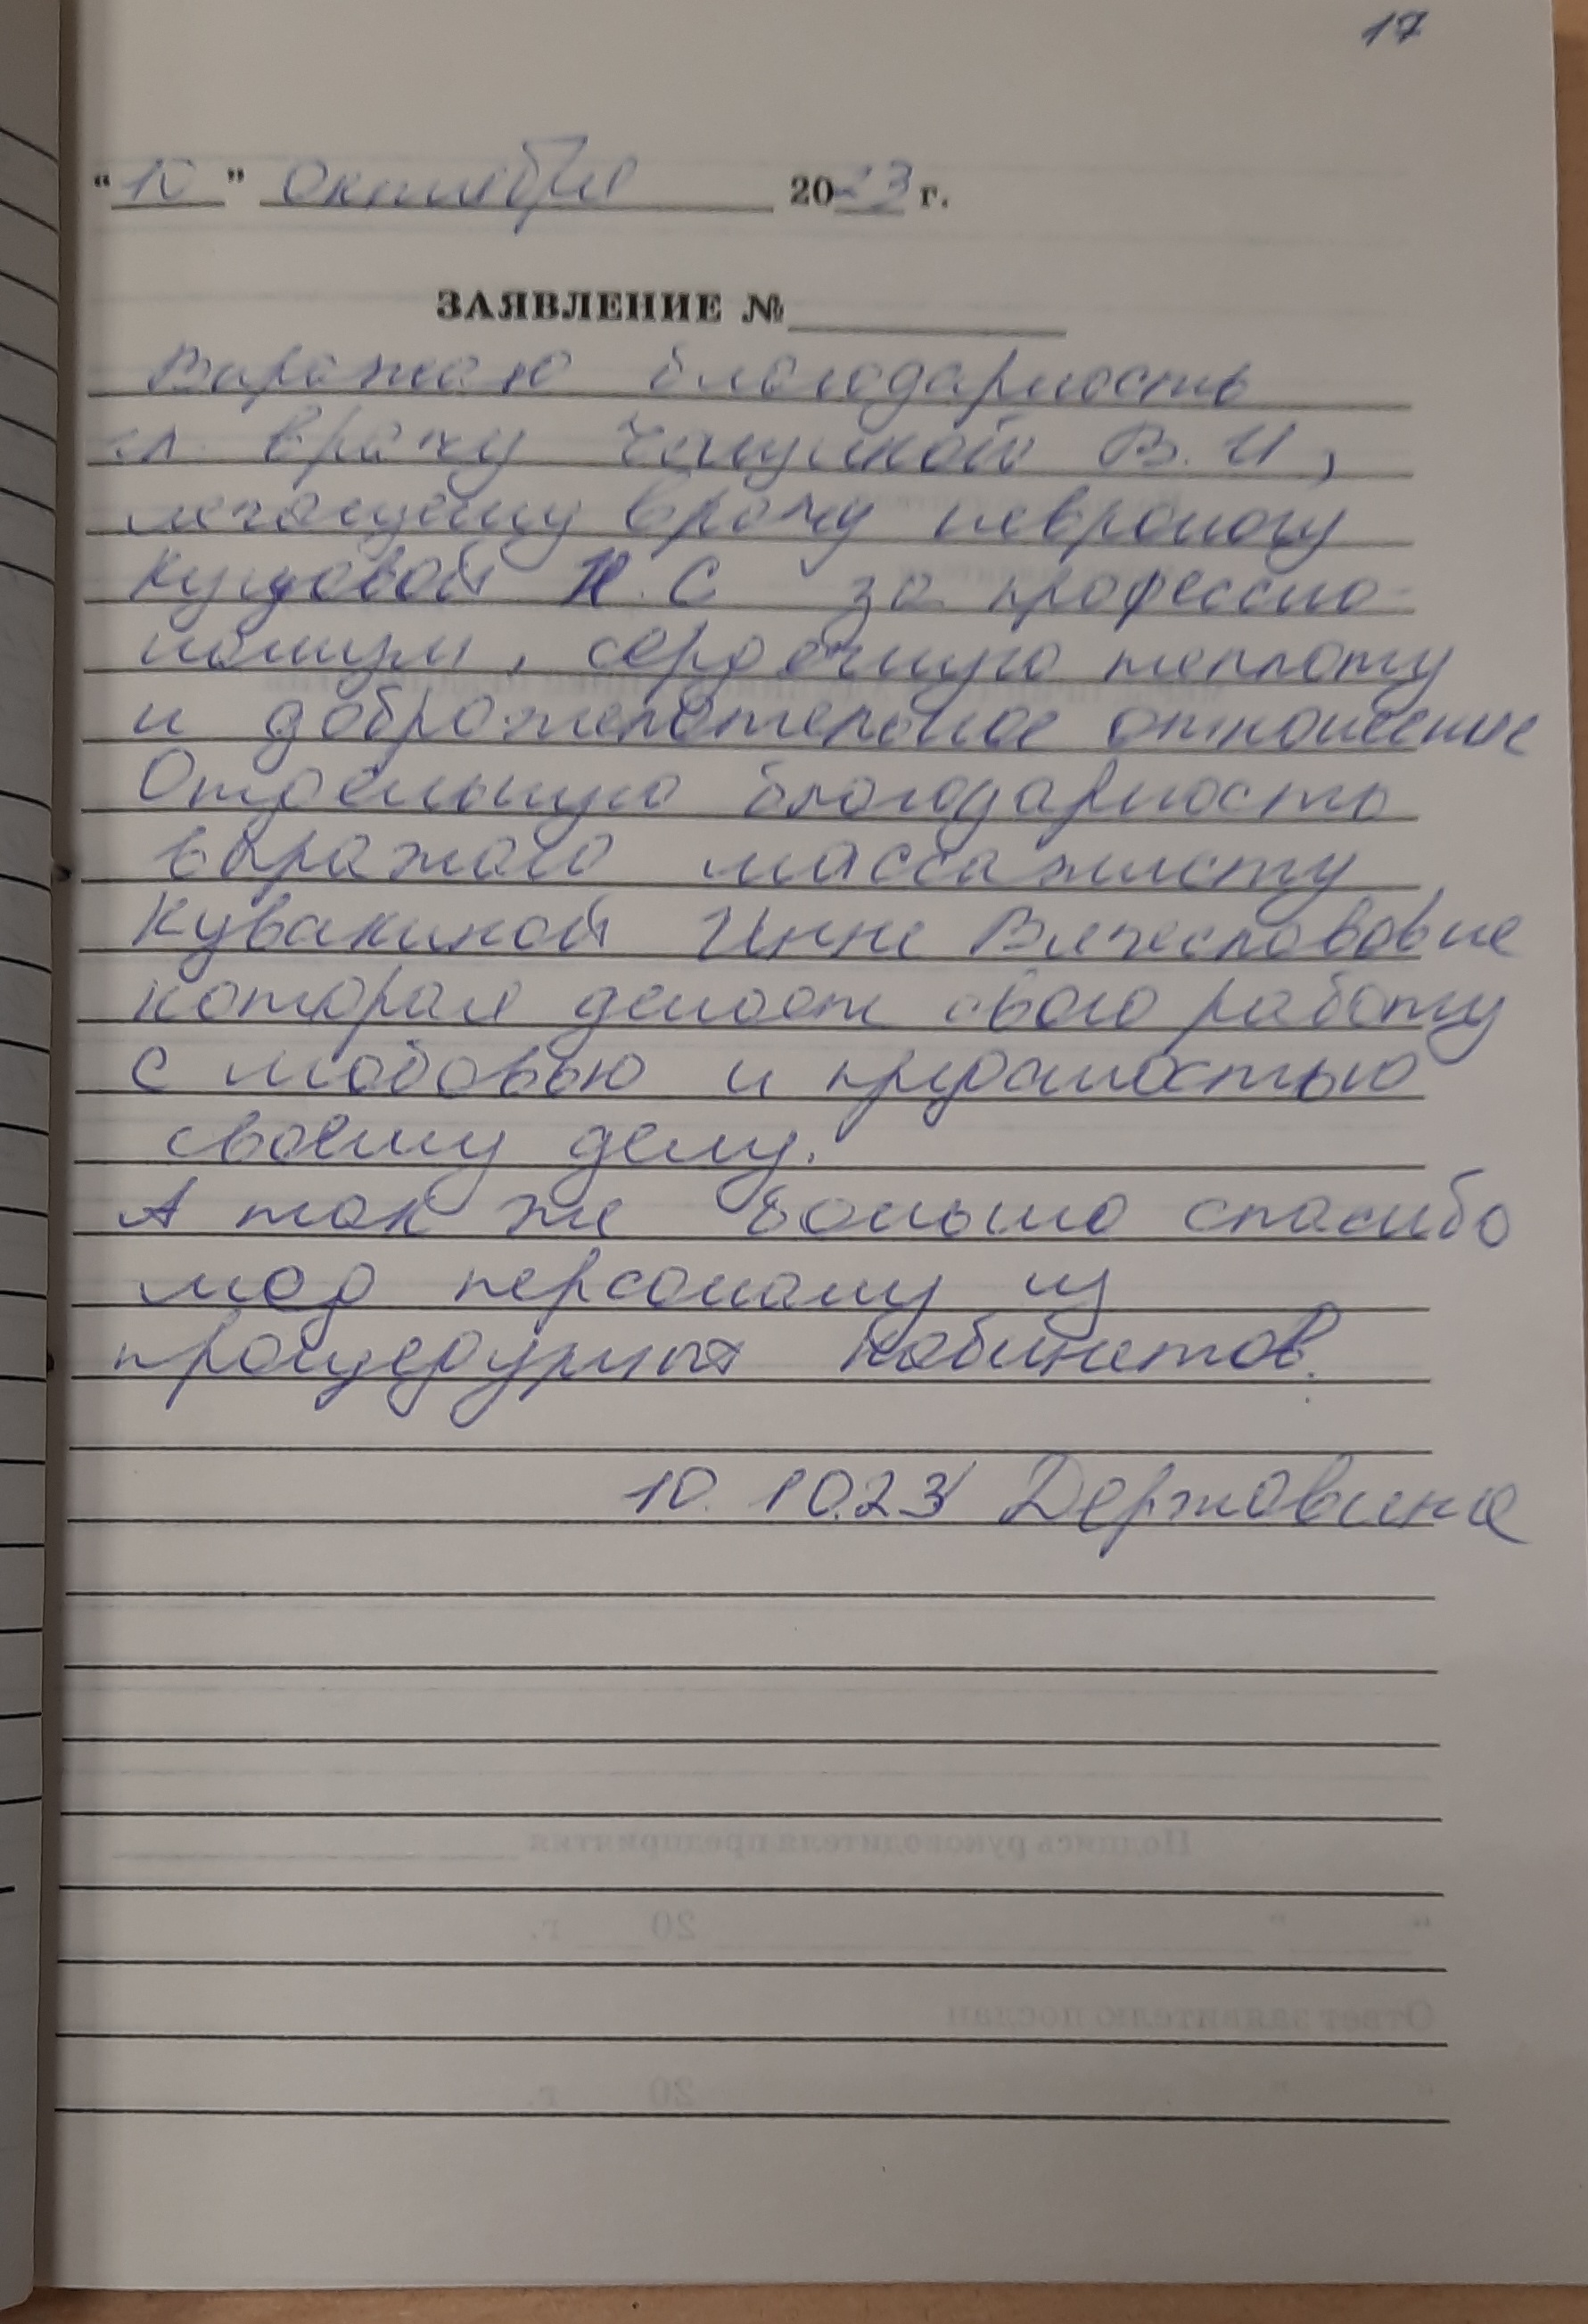 17
"10" октября 2023 г.
ЗАЯВЛЕНИЕ №
Выражаю благодарность
гл. врачу В. И,
лечащему врачу неврологу
К. С за профессио-
нализм, сердечную теплоту
и доброжелательное отношение
Отдельную благодарность
выражаю массажисту
Кувакиной Инне Вячеславовне
которая делает свою работу
с любовью и преданностью
своему делу.
А так же большое спасибо
мед персоналу из
процедурных кабинетов.
10. 10.23 Державина